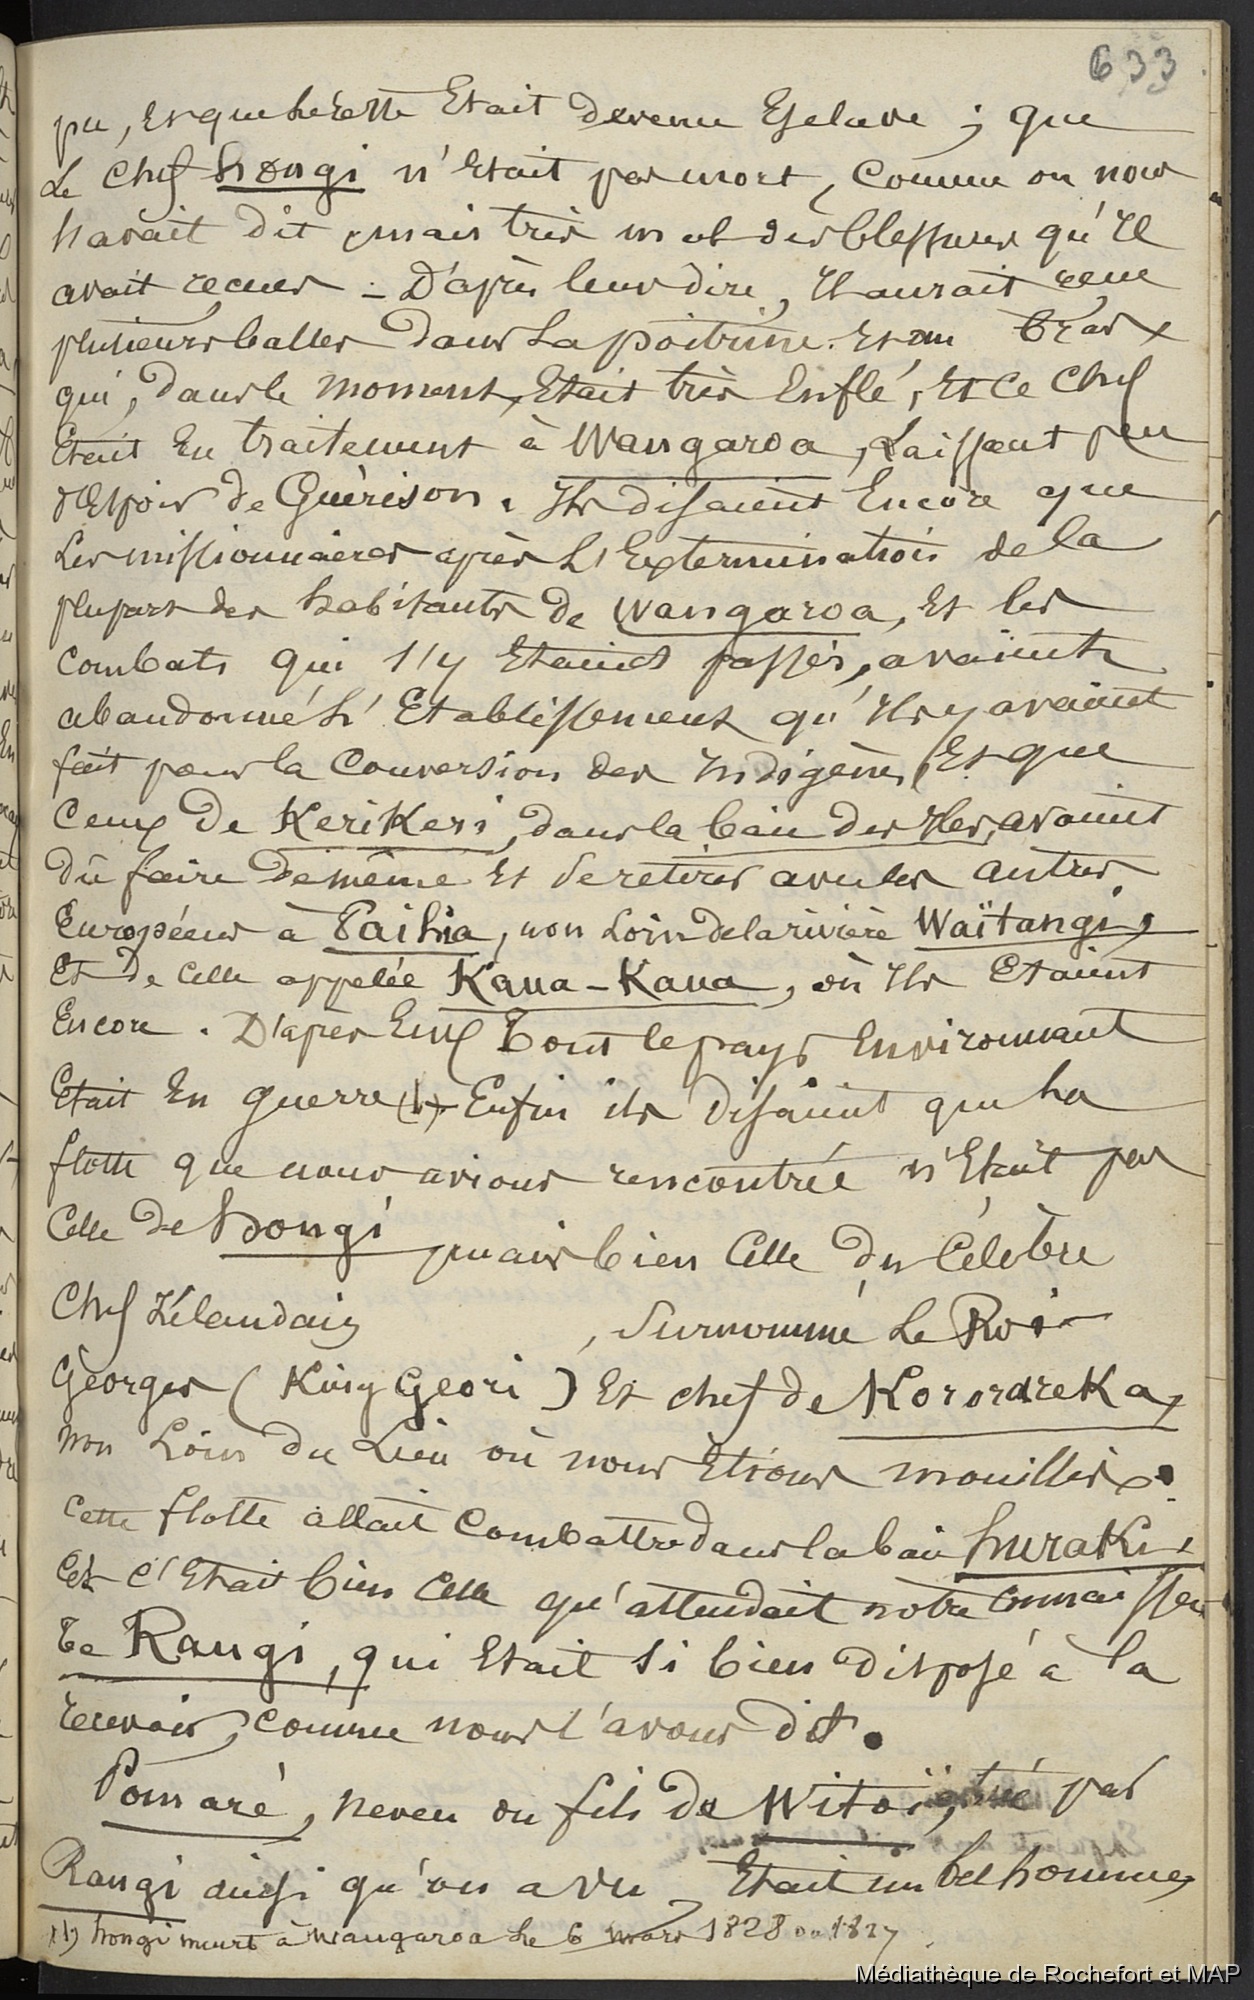 633
pu, Et que le reste Etait devenu Esclave ; que
Le Chef hongi n'Etait pas mort, Comme on nous
L'avait dit, mais très mal des blessures qu'Il
avait recues - D'après leur dire, Il aurait recue
plusieurs balles dans La poitrine Et au bras
qui, dans le moment, Etait très Enflé, Et Ce Chef
Etait En traitement à Wangaroa, Laissant peu
d'Espoir de Guérison. Ils disaient Encore que
Les missionnaires après L'Extermination de la
plupart des habitants de Wangaroa, Et les
Combats qui s'y Etaient passés, avaient
abandonné L'Etablissement qu'Ils y avaient
fait pour la Conversion des Indigènes, Et que
Ceux de KeriKeri, dans la baie des Iles, avaient
dû faire de même Et Se retirer avec les autres
Européens à Paihia, non Loin de la rivière Waïtangi,
Et de Celle appelée Kaua-Kaua, où Ils Etaient
Encore. D'après Eux Tout le pays Environnant
Etait En guerre (1) - Enfin ils disaient que La
flotte que nous avions rencontrée n'Etait pas
Celle de hongi mais bien Celle du Célèbre
Chef Zélandais , Surnommé Le Roi
Georges ( King Geori ) Et chef de KororareKa,
non Loin du Lieu où nous Etions mouillés.
Cette flotte allait Combattre dans la baie huraKi,
Et C'Etait bien Celle qu'attendait notre connaissan
Te Rangi, qui Etait Si bien disposé à la
recevoir, comme nous l'avons dit.
Pomaré, neveu ou fils de Witoï, tué par
Rangi ainsi qu'on a vu, Etait un bel homme,
(1) hongi meurt à Wangaroa Le 6 mars 1828 ou 1827.
Médiathèque de Rochefort et MAP